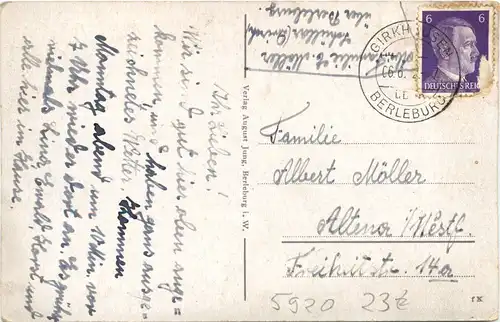 Ihr Lieben!
Wir sind gut hier oben ange=
kommen, und haben ganz ausge=
zeichnetes Wetter. Kommen
Montag abend um Uhr, vor
7 Uhr wieder dort an. Es grüßen
vielmals Ewald, Horst und
alle hier im Hause.
Verlag August Jung, Berleburg i. W.
Familie Möller
über Berleburg
GIRKHAUSEN
BERLEBURG
6 6
DEUTSCHES REICH
Familie
Albert Möller
Altena i/Westf.
Freiheitstr. 14a
5920 23€